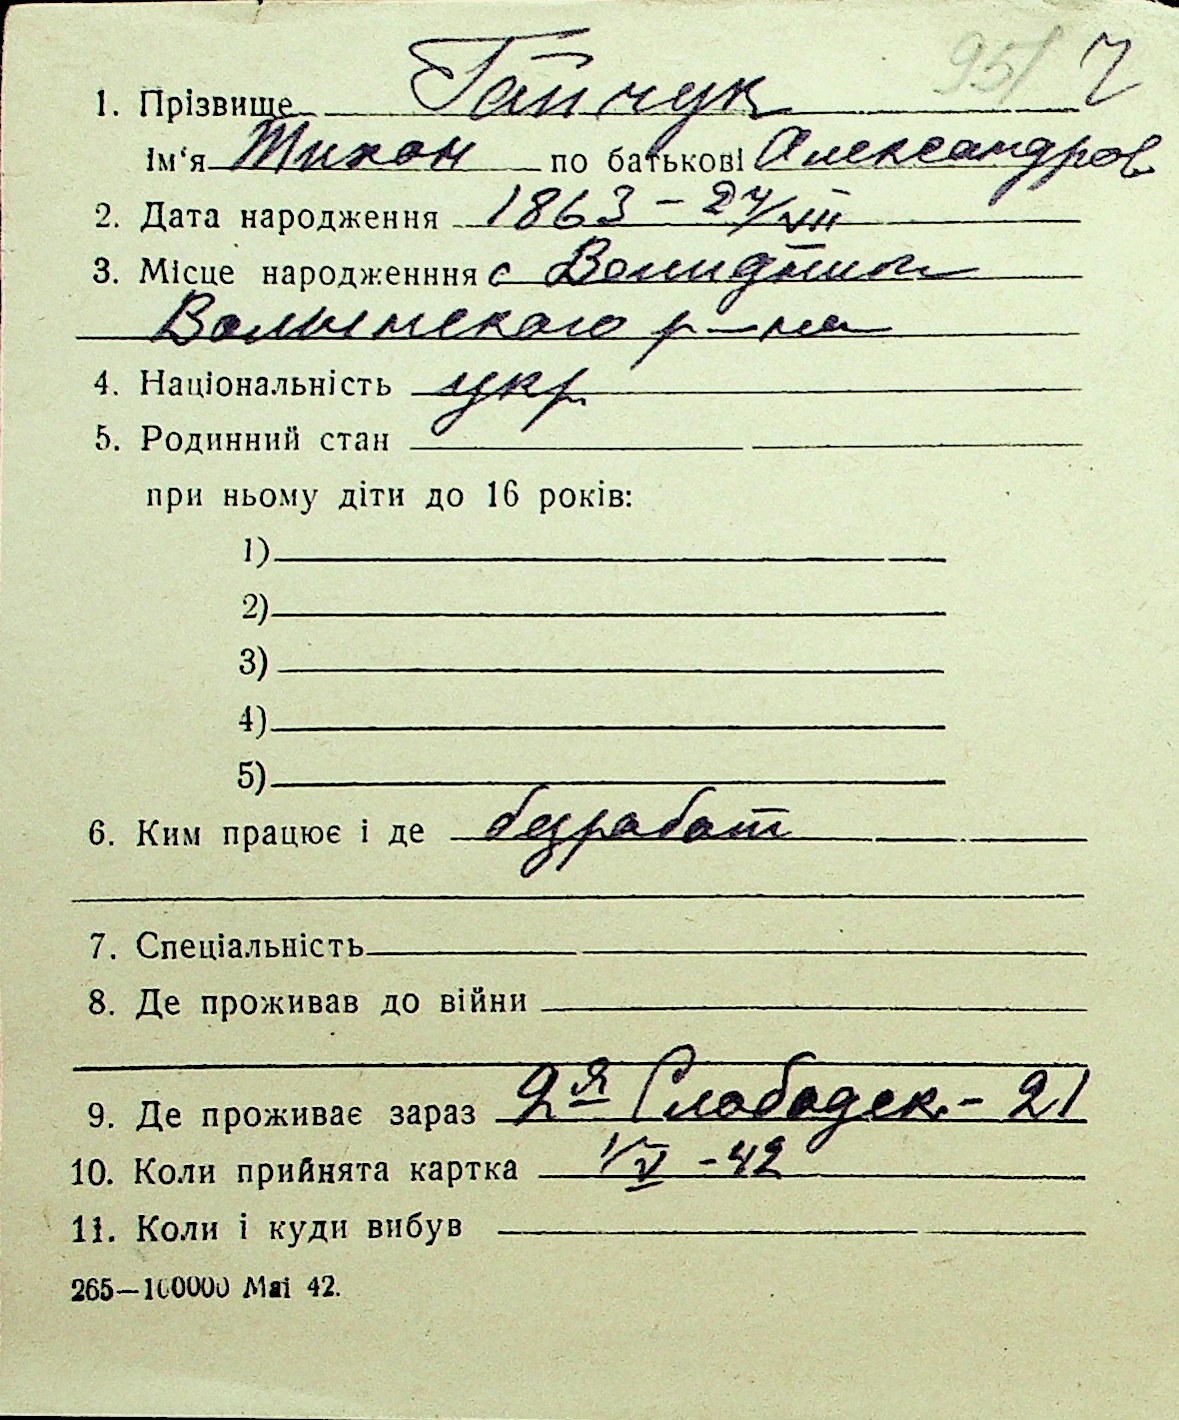 95/ 7
1. Прізвище Гапчук
Ім'я Тихон по батькові Александров
2. Дата народження 1863 - 24/VIII
3. Місце народженння с
Волынского р-на
4. Національність укр
5. Родинний стан
при ньому діти до 16 років:
1)
2)
3)
4)
5)
6. Ким працює і де безработ
7. Спеціальність
8. Де проживав до війни
9. Де проживає зараз 2я Слободск. - 21
10. Коли прийнята картка 1/V - 42
11. Коли і куди вибув
265—100000 Маі 42.